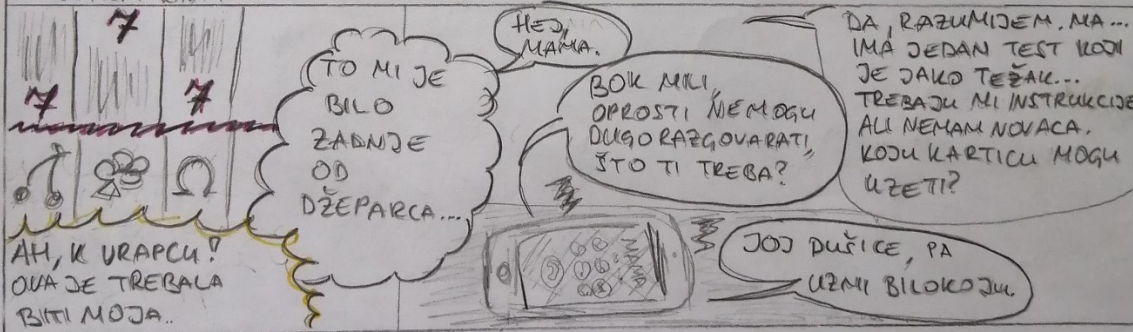 7
7 7
AH, K VRAPCU!
OVA JE TREBALA
BITI MOJA..
TO MI JE
BILO
ZADNJE
OD
DŽEPARCA...
HEJ,
MAMA.
BOK MILI,
OPROSTI NEMOGU
DUGO RAZGOVARATI,
ŠTO TI TREBA?
MAMA
DA, RAZUMIJEM. MA...
IMA JEDAN TEST KOJI
JE JAKO TEŽAK...
TREBAJU MI INSTRUKCIJE
ALI NEMAM NOVACA.
KOJU KARTICU MOGU
UZETI?
JOJ DUŠICE, PA
UZMI BILOKOJU.